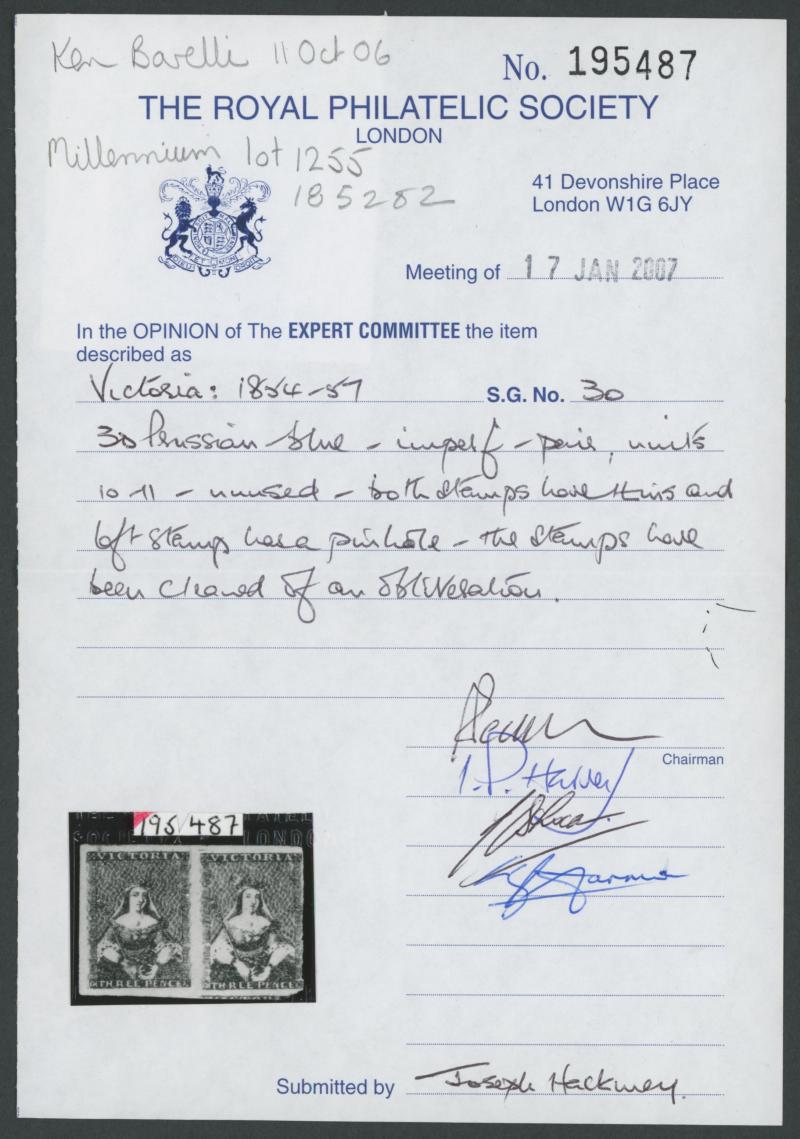 Ken Barelli 11 Oct 06
No. 195487
THE ROYAL PHILATELIC SOCIETY
LONDON
Millennium lot 1255
185282
41 Devonshire Place
London W1G 6JY
Meeting of 17 JAN 2007
In the OPINION of The EXPERT COMMITTEE the item
described as
Victoria: 1854-57 S.G. No. 30
3D Prussian blue - imperf - pair, units
10-11 - unused - both stamps have thins and
left stamp has a pinhole - the stamps have
been cleaned of an obliteration.
Chairman
I.P. Harvey
195/487
LONDON
VICTORIA VICTORIA
THREE PENCE THREE PENCE
Submitted by Joseph Hackmey.